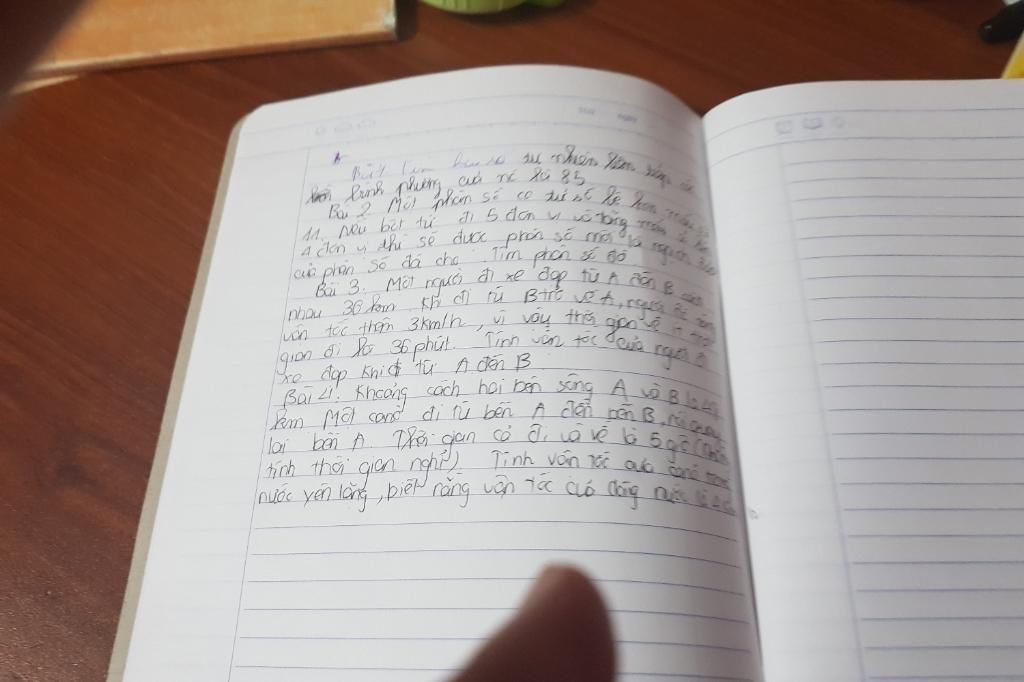 THỨ NGÀY
Bài 1 tìm hai số tự nhiên liên tiếp có
bình phương của nó là 85
Bài 2. Một phân số có tử số bé hơn mẫu số
11. Nếu bớt tử đi 5 đơn vị và tăng mẫu
4 đơn vị thì sẽ được phân số mới là nghịch đảo
của phân số đã cho. Tìm phân số đó
Bài 3. Một người đi xe đạp từ A đến B cách
nhau 36 km. Khi đi từ B trở về A, người đó tăng
vận tốc thêm 3km/h, vì vậy thời gian về ít
gian đi là 36 phút. Tính vận tốc của người đi
xe đạp khi đi từ A đến B
Bài 4: Khoảng cách hai bến sông A và B là
km Một canô đi từ bến A đến bến B, rồi quay
lại bến A. Thời gian cả đi và về là 5 giờ (không
tính thời gian nghỉ). Tính vận tốc của canô trong
nước yên lặng, biết rằng vận tốc của dòng nước là 4